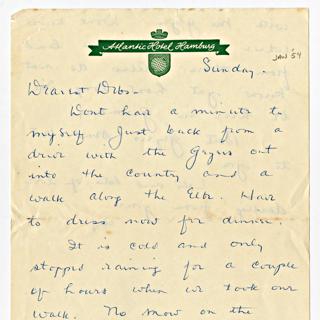 Atlantic Hotel Hamburg
JAN 54
Sunday.
Dearest Debs-
Dont have a minute to
myself. Just back from a
drive with the Geyrs out
into the country and a
walk along the Elbe. Have
to dress now for dinner.
It is cold and only
stopped raining for a couple
of hours when we took our
walk. No snow on the